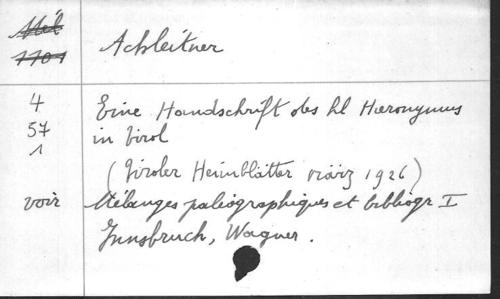 Mél
1701
Achleitner
4
57
1
Eine Handschrift des hl Hieronymus
in Tirol
(Tiroler Heimblätter März 1926)
voir
Mélanges paléographiques et bibliogr I
Innsbruck, Wagner.